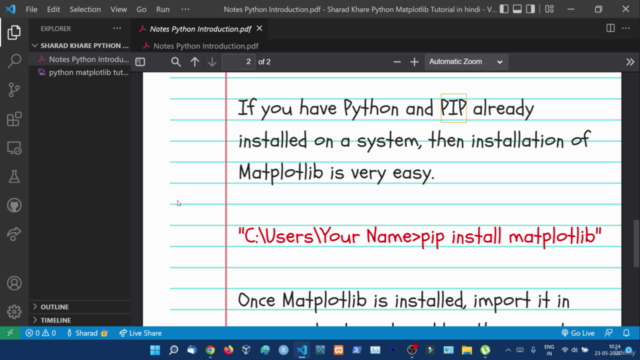 File Edit Selection View Go Run ··· Notes Python Introduction.pdf - Sharad Khare Python Matplotlib Tutorial in hindi - V...
EXPLORER ···
Notes Python Introduction.pdf ×
SHARAD KHARE PYTHON ...
Notes Python Introduction.pdf
Notes Python Introduction.pdf
python matplotlib tut...
2 of 2
Automatic Zoom
If you have Python and PIP already
installed on a system, then installation of
Matplotlib is very easy.
"C:\Users\Your Name>pip install matplotlib"
Once Matplotlib is installed, import it in
OUTLINE
TIMELINE
0 0 Sharad Live Share
Go Live
ENG
IN
10:24
23-05-20